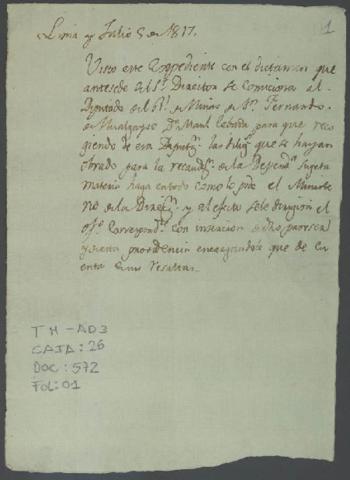 1
Lima y Julio 5 de 1817.
Visto este Expediente con el dictamen que
antesede del Sr. Director se comiciona al
Diputado del Rl. de Minas de Sn. Fernando
de Hualgayoc Dn. Manl. para que reco
giendo de esa Diputn. las dilig.s que se hayan
obrado para la recaudn. de la
materia haga entodo como lo pide el
rio de la y al efecto se le dirigirá el
ofo. correspond.e con insercion de dho
y esta providencia encargandole que de cu
enta de sus resultas.
TM-AD3
CAJA: 26
DOC: 572
FOL: 01